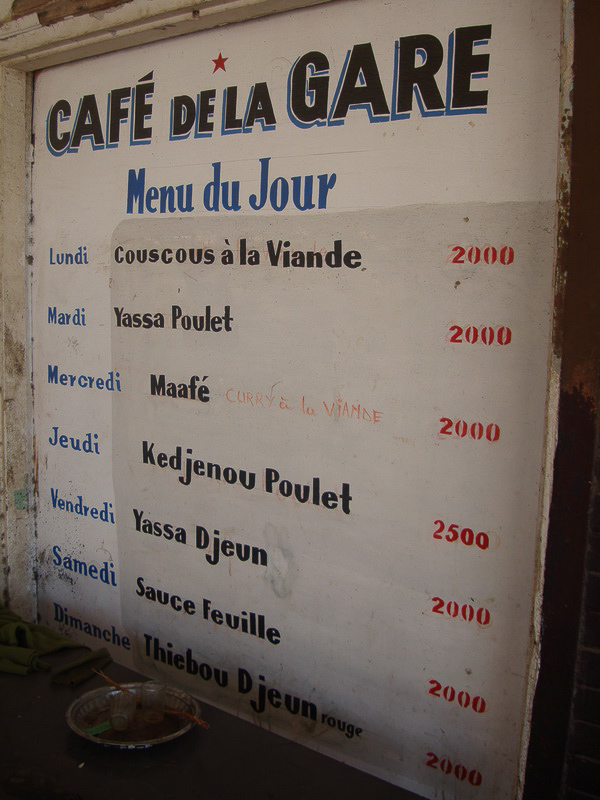 CAFÉ DE LA GARE
Menu du Jour
Lundi Couscous à la Viande 2000
Mardi Yassa Poulet 2000
Mercredi Maafé CURRY à la VIANDE 2000
Jeudi Kedjenou Poulet 2500
Vendredi Yassa Djeun 2000
Samedi Sauce Feuille 2000
Dimanche Thiebou Djeun rouge 2000